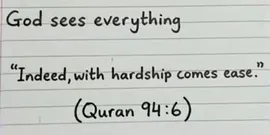 God sees everything
“Indeed, with hardship comes ease.”
(Quran 94:6)